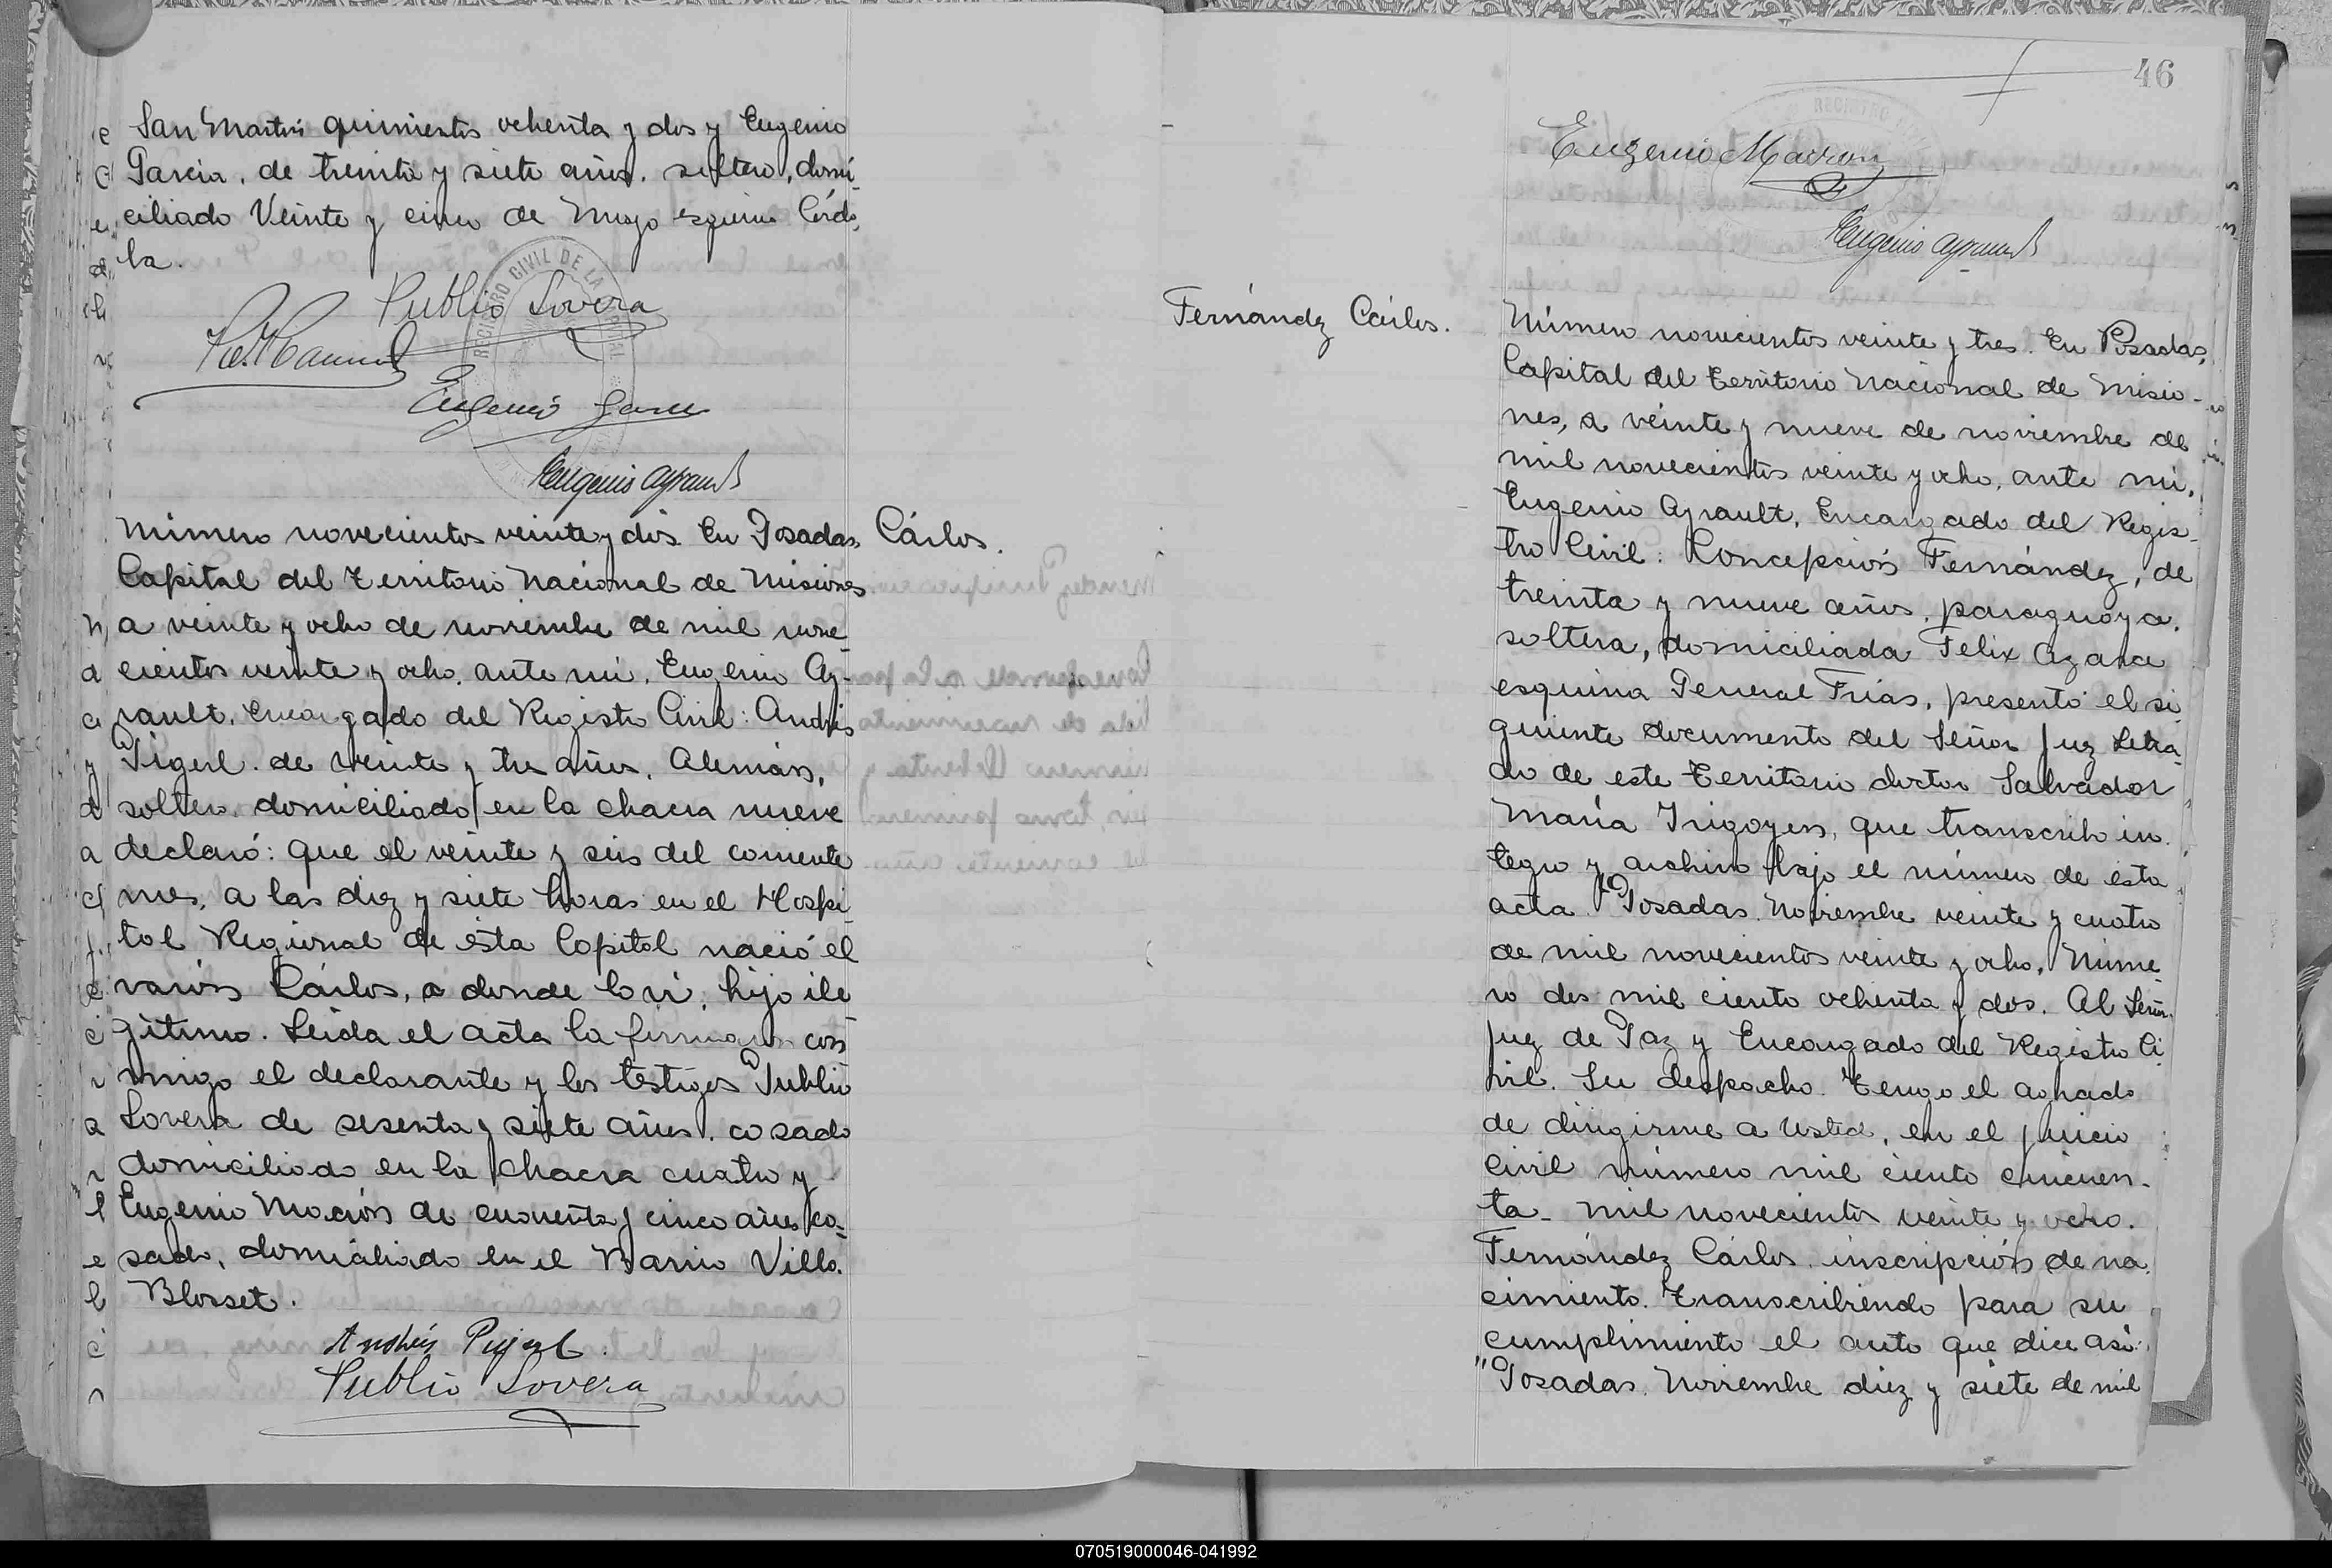 San Martín quinientos ochenta y dos y Eugenio
Garcia, de treinta y siete años, soltero, domi-
ciliado Veinte y cinco de Mayo esquina Córdo-
ba.
Publio Lovera
Eugenio Garcia
Eugenio Ayrault
Número novecientos veinte y dos. En Posadas,
Capital del Territorio Nacional de Misiones
a veinte y ocho de noviembre de mil nove-
cientos veinte y ocho, ante mi, Eugenio Ay-
rault, Encargado del Registro Civil: Andrés
de veinte y tres años, Alemán,
soltero, domiciliado en la chacra nueve
declaró: que el veinte y seis del corriente
mes, a las diez y siete horas en el Hospi-
tal Regional de esta Capital nació el
varón Cárlos, a donde lo vi, hijo ile-
gítimo. Leida el acta la firmaron con
migo el declarante y los testigos Publio
Lovera de sesenta y siete años, casado
domiciliado en la chacra cuatro y
Eugenio de cuarenta y cinco años ca-
sado, domiciliado en el Barrio Villa
Blosset.
Andrés
Publio Lovera
Cárlos.
46
Eugenio
Eugenio Ayrault
Fernández Cárlos.
Número novecientos veinte y tres. En Posadas,
Capital del Territorio Nacional de Misio-
nes, a veinte y nueve de noviembre de
mil novecientos veinte y ocho, ante mi,
Eugenio Ayrault, Encargado del Regis-
tro Civil: Concepción Fernández, de
treinta y nueve años, paraguaya,
soltera, domiciliada Felix Azara
esquina General Frías, presentó el si
guiente documento del Señor Juez Letra-
do de este Territorio doctor Salvador
María Irigoyen, que transcribo in
tegro y archivo bajo el número de esta
acta. "Posadas. Noviembre veinte y cuatro
de mil novecientos veinte y ocho. Núme-
ro dos mil ciento ochenta y dos. Al Señor
Juez de Paz y Encargado del Registro Ci
vil. Su despacho. Tengo el agrado
de dirigirme a Usted, en el juicio
civil número mil ciento cincuen-
ta - mil novecientos veinte y ocho.
Fernández Cárlos, inscripción de na-
cimiento. Transcribiendo para su
cumplimiento el auto que dice asi:
"Posadas. Noviembre diez y siete de mil
070519000046-041992